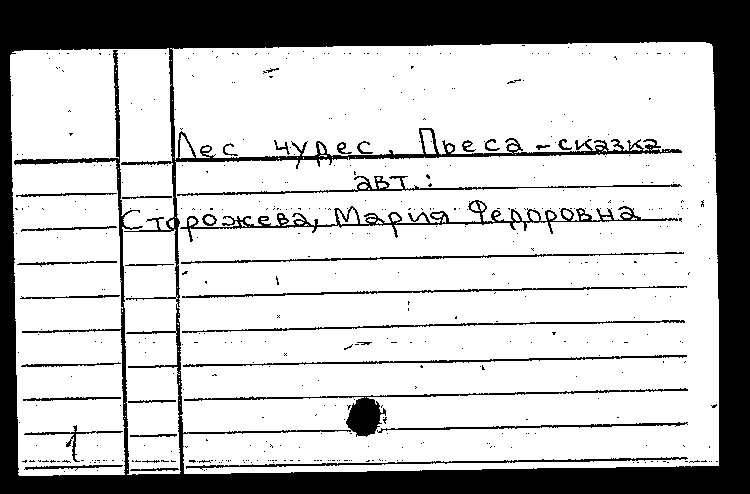 Лес чудес. Пьеса-сказка
авт.:
Сторожева, Мария Федоровна
1